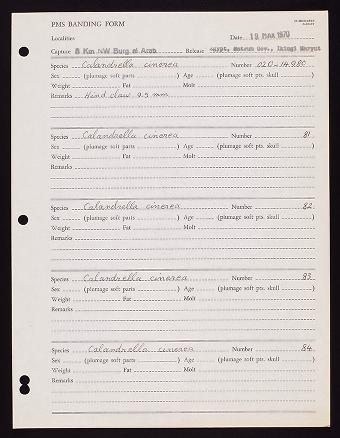 PMS BANDING FORM
Localities Date 19 MAR 1970
Capture 8 Km NW Burg el Arab Release Egypt, Matruh Gov., Ikingi Maryut
Species Calandrella cinerea Number 020-14980
Sex (plumage soft parts ) Age (plumage soft pts. skull )
Weight Fat Molt
Remarks Hind claw 9.5 mm
Species Calandrella cinerea Number 81
Sex (plumage soft parts ) Age (plumage soft pts. skull )
Weight Fat Molt
Remarks
Species Calandrella cinerea Number 82
Sex (plumage soft parts ) Age (plumage soft pts. skull )
Weight Fat Molt
Remarks
Species Calandrella cinerea Number 83
Sex (plumage soft parts ) Age (plumage soft pts. skull )
Weight Fat Molt
Remarks
Species Calandrella cinerea Number 84
Sex (plumage soft parts ) Age (plumage soft pts. skull )
Weight Fat Molt
Remarks